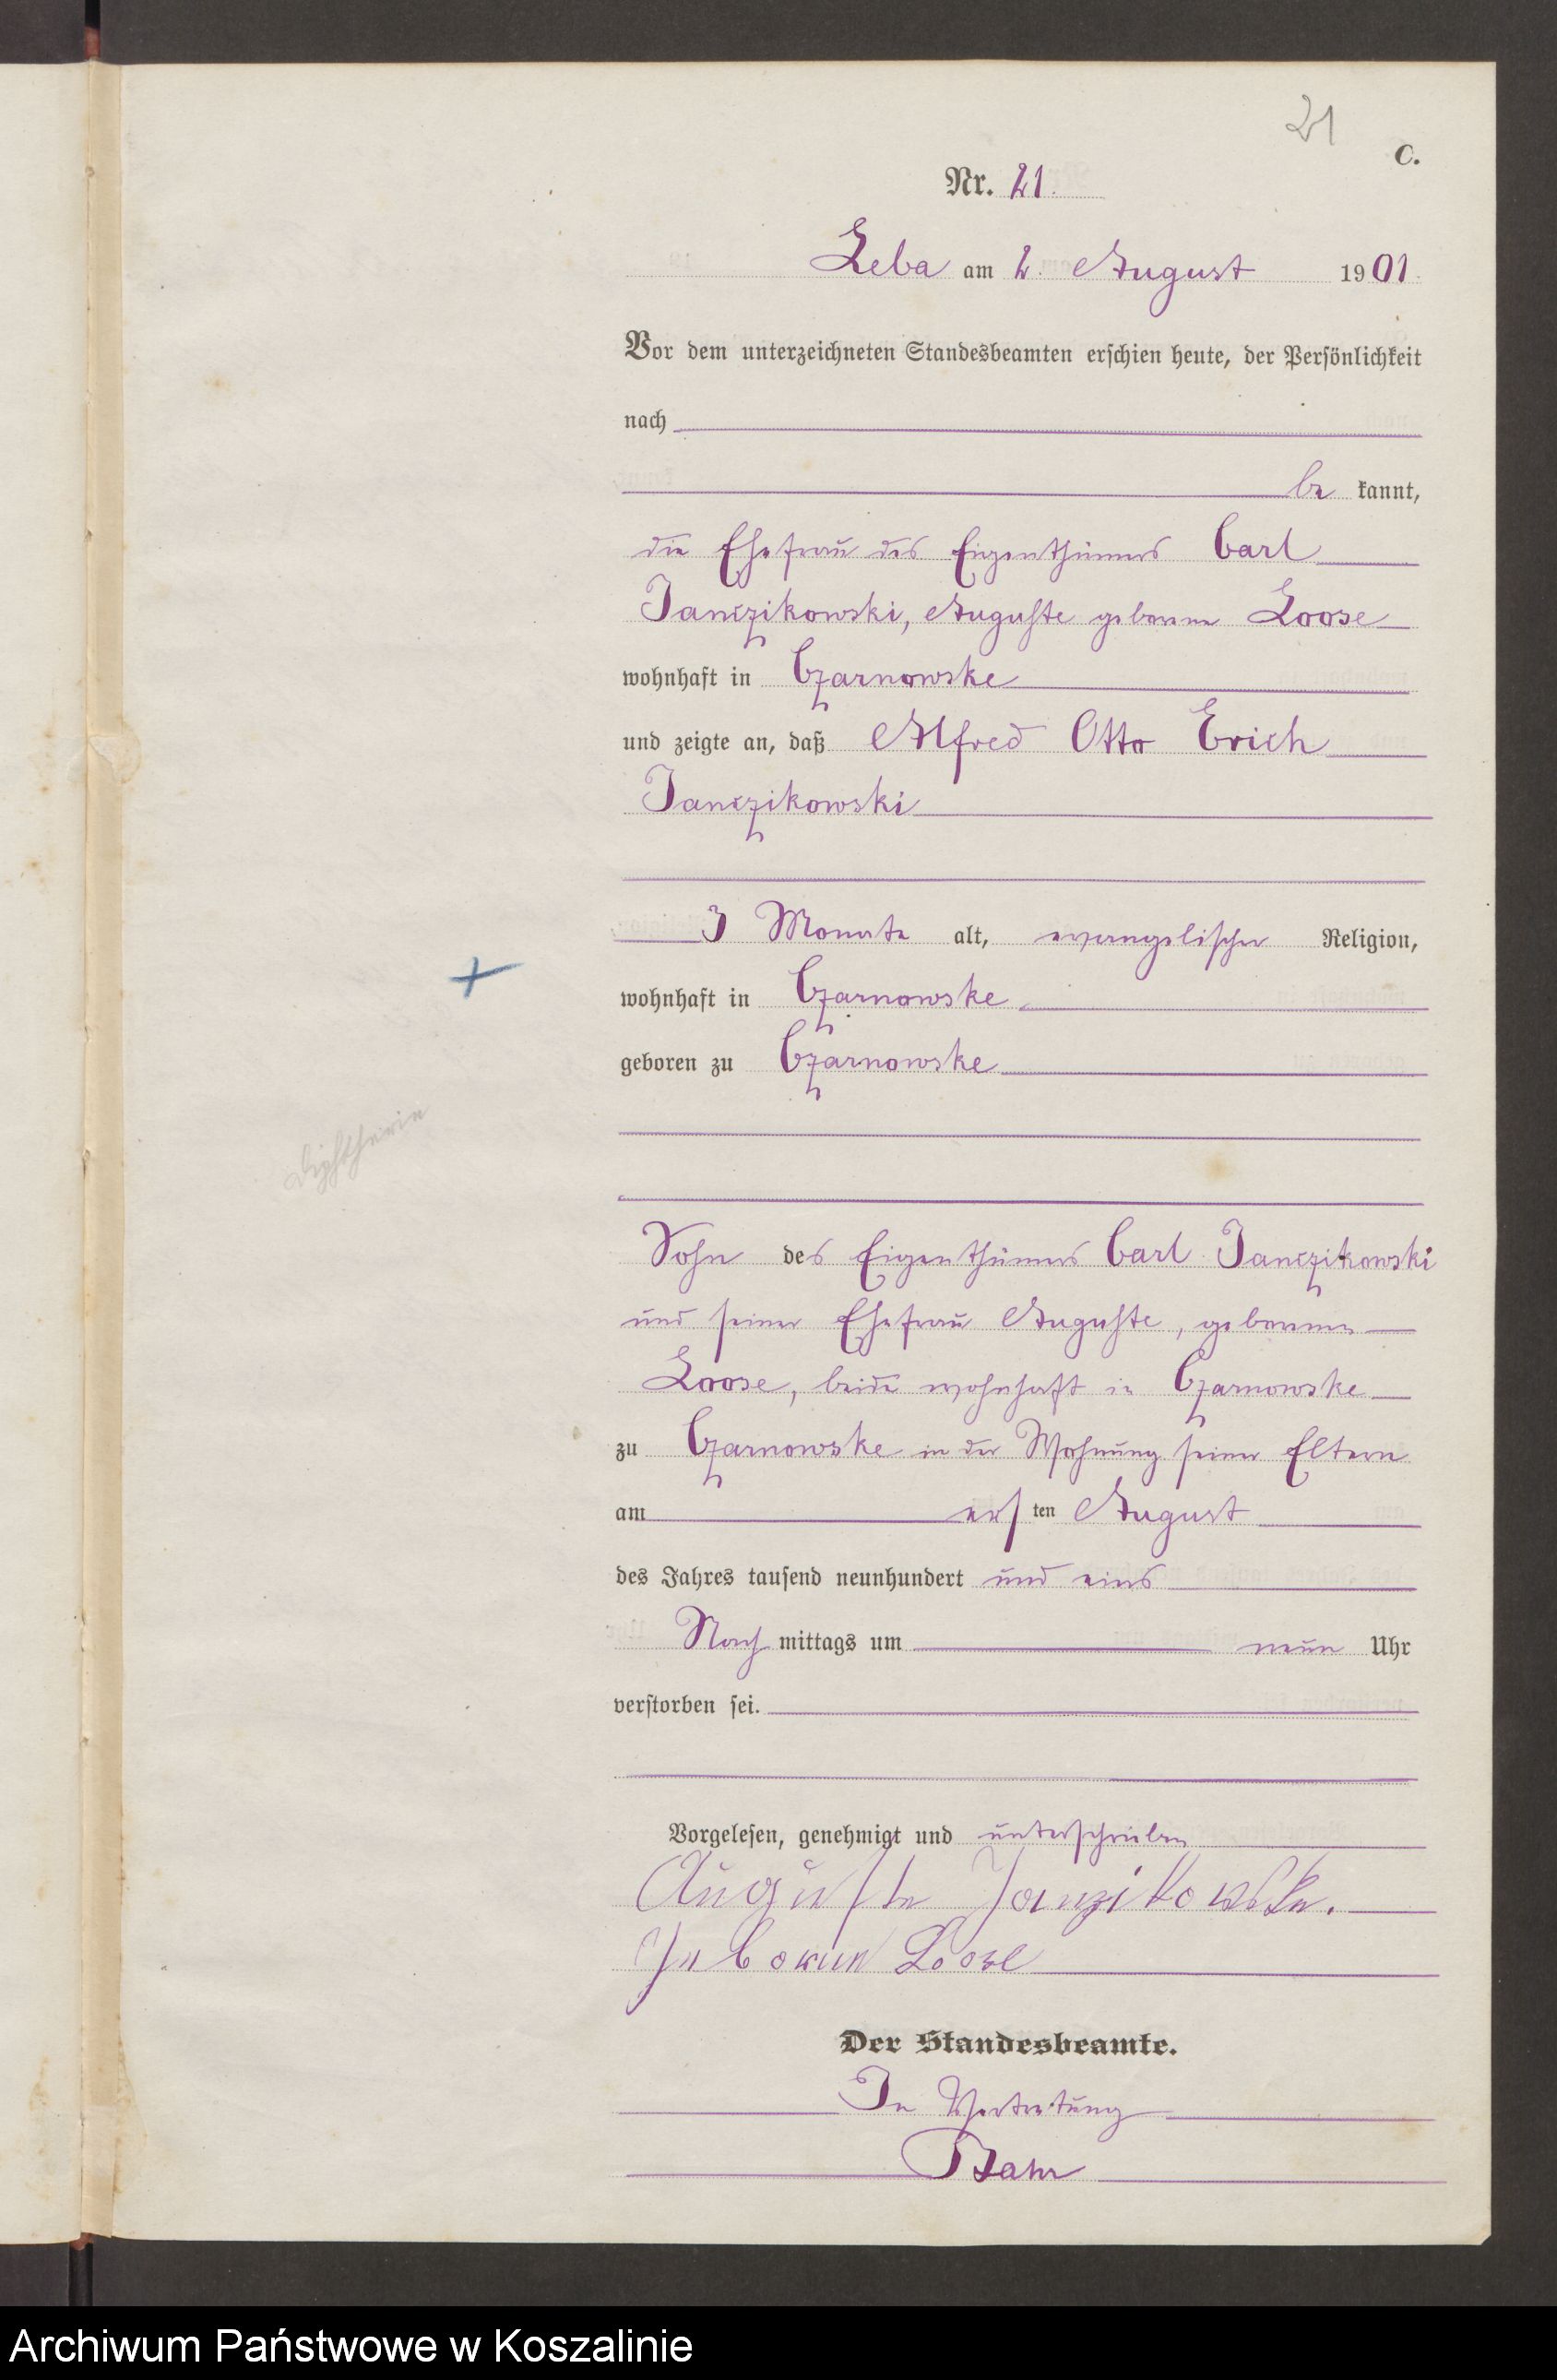 21
C.
Nr. 21.
Leba am 2. August 1901.
Vor dem unterzeichneten Standesbeamten erschien heute, der Persönlichkeit
nach
be kannt,
die Ehefrau des Eigenthümers Carl
Janczikowski, Auguste geborene Loose
wohnhaft in Czarnowske
und zeigte an, daß Alfred Otto Erich
Janczikowski
3 Monate alt, evangelischer Religion,
wohnhaft in Czarnowske
geboren zu Czarnowske
Diphtherie
Sohn des Eigenthümers Carl Janczikowski
und seiner Ehefrau Auguste, geborenen
Loose, beide wohnhaft in Czarnowske
zu Czarnowske in der Wohnung seiner Eltern
am ersten August
des Jahres tausend neunhundert und eins
Nach mittags um neun Uhr
verstorben sei.
Vorgelesen, genehmigt und unterschrieben
Auguste
Loose
Der Standesbeamte.
In Vertretung
Archiwum Państwowe w Koszalinie